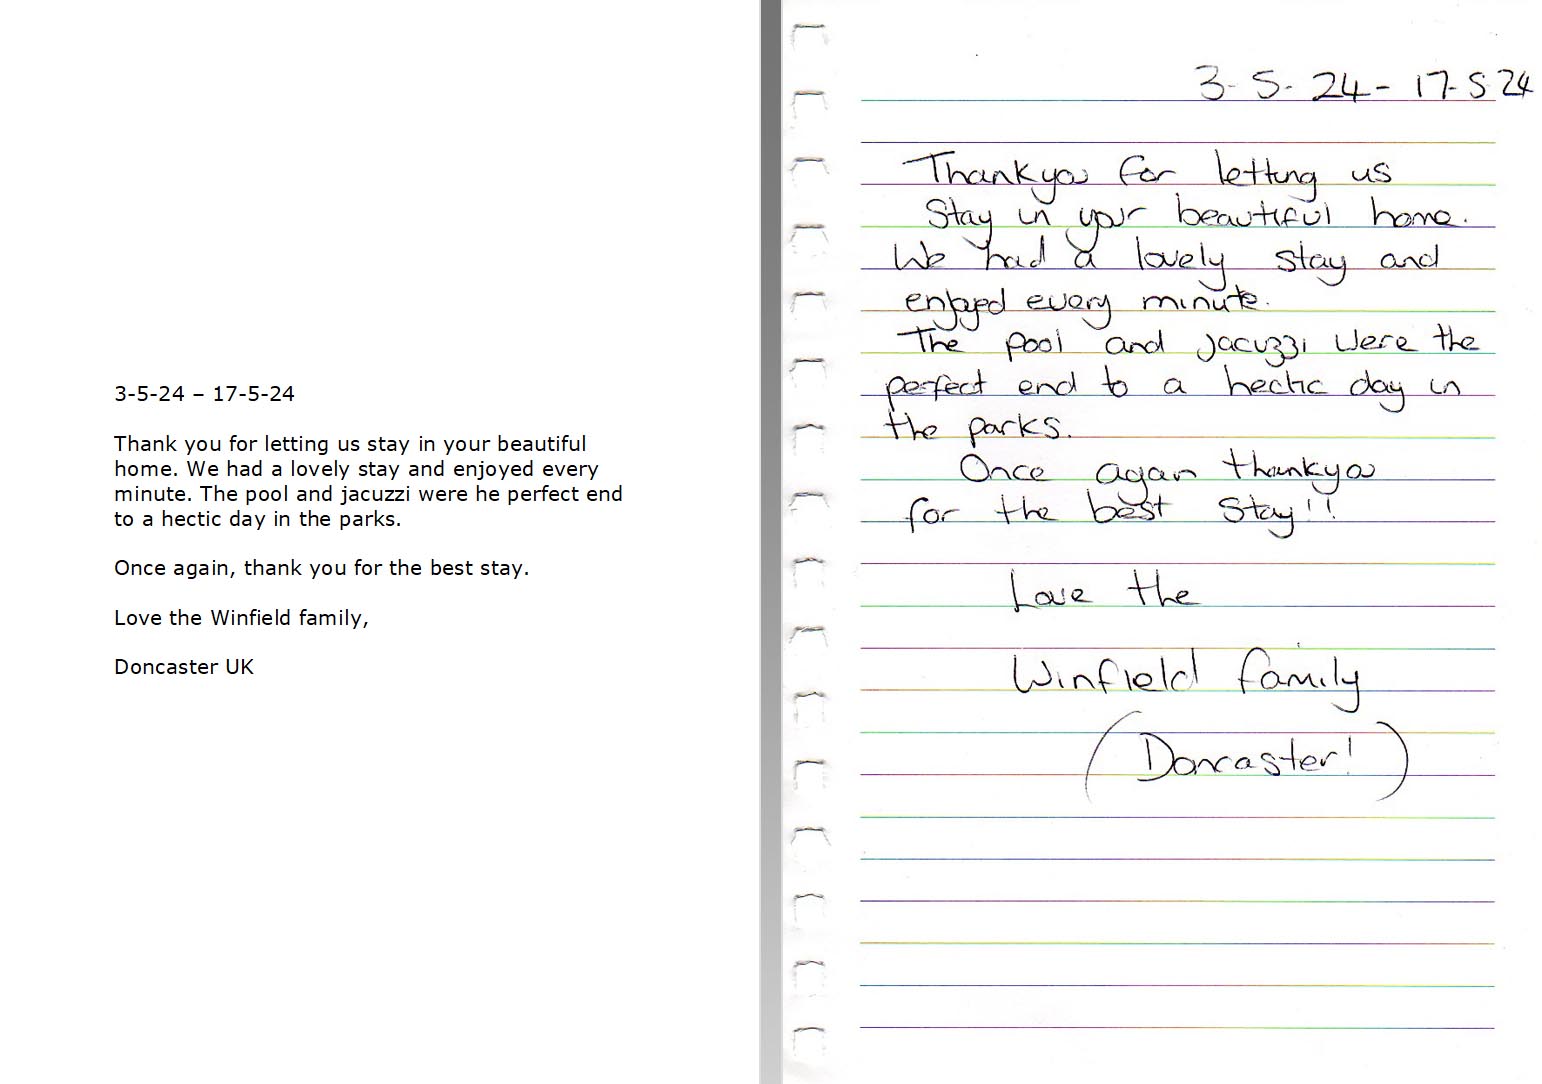 3-5-24 – 17-5-24
Thank you for letting us stay in your beautiful
home. We had a lovely stay and enjoyed every
minute. The pool and jacuzzi were he perfect end
to a hectic day in the parks.
Once again, thank you for the best stay.
Love the Winfield family,
Doncaster UK
3-5-24-17-5 24
Thankyou for letting us
Stay in your beautiful home.
We had a lovely stay and
enjoyed every minute.
The pool and jacuzzi were the
perfect end to a hectic day in
the parks.
Once again thankyou
for the best Stay!!
Love the
Winfield family
(Doncaster!)